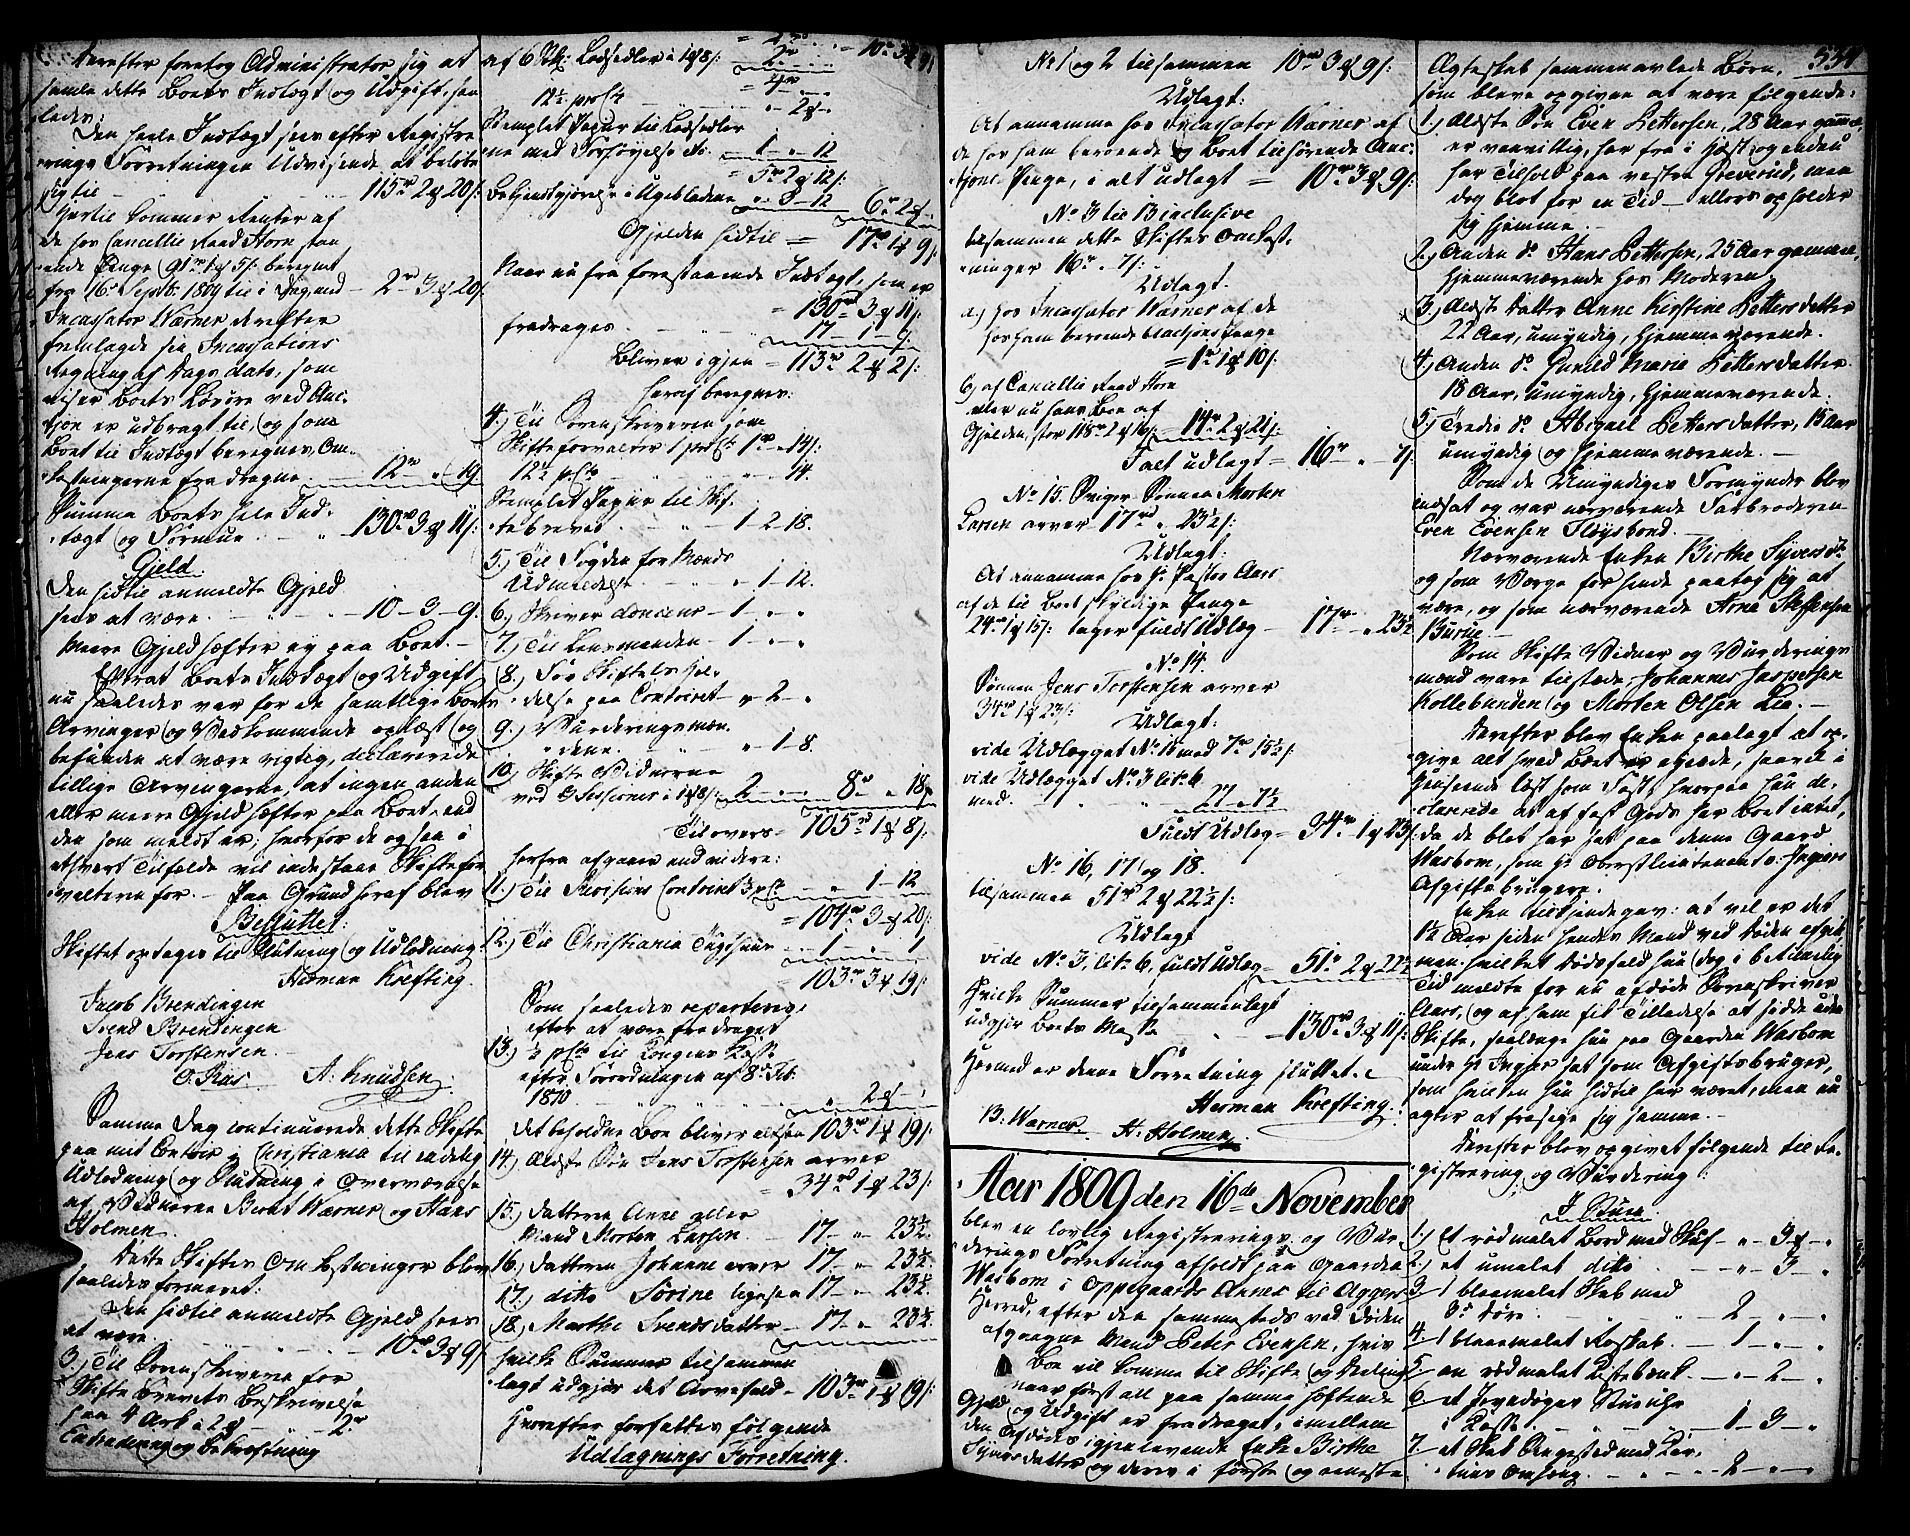 Derefter foretog Administrator sig at
samle dette Boets Indtægt og Udgift, saa-
ledes:
Den heele Indtægt sees efter Registre
rings Forretningen Udvisende at beløbe
sig til - 115rd 2 20 s:
Hertil kommer Renter af
de hos Cancellie Raad Horn staa
ende Penge 91rd 1 5 s: beregnet
fra 16 Septb: 1809 til i Dag med - 2rd 3 20 s
Incassator Warner derefter
fremlagde sin Incassations
Regning af Dags dato, som
viser Boets Løsøre ved Auc-
tion er udbragt til, og som
Boet til Indtægt beregnes, Om-
kostningerne fradragne 12rd " 19
Summa Boets hele Ind-
tægt og Formue - 130rd 3 11 s:
Gjeld.
Den hidtil anmeldte Gjeld
sees at være - 10 - 3 - 9
Meere Gjeld hæfter ey paa Boet. -
Efterat Boets Indtægt og Udgift
nu saaledes var for de samtlige Boets
Arvinger og Vedkommende oplæst og
befunden at være rigtig, declarerede
tillige Arvingerne, at ingen anden
eller meere Gjeld hæfter paa Boet, end
den som meldt er; hvorfor de ogsaa i
ethvert Tilfælde vil indestaae Skiftefor
valteren for. - Paa Grund heraf blev
Besluttet:
Skiftet optages til Slutning og Udlodning
Herman Krefting.
Jacob Brendingen
Svend Brendengen
Jens Torstensen
O. Riis A. Knudsen
Samme Dag continuerede dette Skifte
paa mit Contoir i Christiania til endelig
Udlodning og Slutning i Overværelse
af Vidnerne Bernt Warner og Hans
Holmen.
Dette Skiftes Omkostninger blev
saaledes formeret:
Den hidtil anmeldte Gjeld sees
at være 10rd 3 9 s:
3.) Til Sorenskriveren for
Skifte Brevets Beskrivelse
paa 4 Ark a 2 - 2rd
Extradering og Bekræftning
af 6 Stk: Lodsedler a 1 8 s: 2rd
4rd
12½ prCt - " 2
Stemplet Papir til Lodsedler
ne med Forhøyelse - 1 " 12
5rd 2 12 s:
Bekiendtgjørelse i Ugebladene " 3 - 12 6rd 2
Gjelden hidtil = 17rd 1 9 s:
Naar nu fra forestaaende Indtægt, som er
130rd 3 11 s:
fradrages 17 - 1 - 9
Bliver igjen = 113rd 2 2 s:
heraf beregnes:
4.) Til Sorenskriveren som
Skifteforvalter 1 prCt 1rd " 14 s:
12½ prCt " " 14
Stemplet Papir til Skif-
tebrevet - 1 - 2 - 18.
5.) Til Fogden for Mænds
Udmeldelse " 1 - 12.
6.) Skriver douceur - 1 " "
7.) Til Lensmanden - 1 " "
8.) For Skiftets hol-
delse paa Contoiret " 2 "
9.) Vurderingsmæn-
dene " 1 - 8.
10.) Skifte Vidnerne
ved Sessioner a 1 8 s: 2 8rd " 18
Tilovers = 105rd 1 8 s:
herfra afgaaer endvidere:
11.) Til Revisions Contoiret " 1 - 12
104rd 3 20 s:
12.) Til Christiania Tugthuus " 1 " 1
103rd 3 19 s:
Som saaledes reparteres
efter at være fradraget
13.) ½ prCt til Kongens Kasse
efter Forordningen af 8de Feb:
1810 " 2
Det beholdne Boe bliver altsaa 103rd 1 19 s:
14.) Ældste Søn Jens Torstensen arver
34rd 1 23 s:
15.) Datteren Anne eller
Mand Morten Larsen - 17 " 23½
16.) Datteren Johanne arver 17 " 23½
17.) ditto Sørine ligesaa 17 " 23½
18.) Marthe Svendsdatter 17 " 23½
hvilke Summer tilsammen
lagt udgjør det Arvefald 103rd 1 19 s:
Hvorefter forfattes følgende
Udlægnings Forretning.
No 1 og 2 tilsammen 10rd 3 9 s:
Udlagt:
At annamme hos Incassator Warner af
de hos ham beroende og Boet tilhørende Auc-
tions Penge, i alt udlagt = 10rd 3 9 s:
No 3 til 13 inclusive
tilsammen dette Skiftes Omkost-
ninger 16rd " 7 s:
Udlagt.
a) hos Incassator Warner af de
hos ham beroende Auctions Penge
= 1rd 1 10 s:
b) af Cancellie Raad Horn
eller nu hans Boe af
Gjelden, stor 118rd 2 1 s: 14rd 2 21 s:
I alt udlagt = 16rd " 7 s:
No 15. Sviger Sønnen Morten
Larsen arver 17rd " 23½ s:
Udlagt:
At annamme hos Hr Pastor Aars
af de til Boet skyldige Penge
24rd 1 15 s: tager fuldt Udlæg - 17rd " 23½
No 14.
Sønnen Jens Torstensen arver
34rd 1 23 s:
Udlagt:
vide Udlægget No 15 med 7rd 15½ s:
vide Udlægget No 3 lit: b
med 27 " 7½
Fuldt Udlæg - 34rd 1 23 s:
No 16, 17 og 18.
tilsammen 51rd 2 22½ s:
Udlagt
vide No 3, lit: b, fuldt Udlæg - 51rd 2 22½
hvilke Summer tilsammenlagt
udgjør Boets Masse - 130rd 3 11 s:
Hermed er denne Forretning sluttet.
Herman Krefting.
B: Warner. H: Holmen
Aar 1809 den 16de November
blev en lovlig Registrerings og Vur-
derings Forretning afholdt paa Gaarden
Wasbom i Oppegaards Annex til Aggers
Herred, efter den sammesteds ved Døden
afgangne Mand Peter Evensen, hvis
Boe vil komme til Skifte og Deeling
naar først all paa samme hæftende
Gjeld og Udgift er fradraget, imellem
den Afdødes igjenlevende Enke Birthe
Syversdatter og deres i første og eeneste
537
Ægteskab sammenavlede Børn,
som bleve opgivne at være følgende:
1.) Ældste Søn Even Pettersen, 28 Aar gammel,
er vanvittig, har fra i Høst og endnu
har Tilhold paa vestre Greverud, men
dog blot for en Tid - ellers opholder
sig hjemme. -
2.) Anden do Hans Pettersen, 25 Aar gammel,
hjemmeværende hos Moderen
3.) Ældste Datter Anne Kirstine Pettersdatter
22 Aar, umyndig, hjemmeværende.
4.) Anden do Gunild Marie Pettersdatter
18 Aar, umyndig, hjemmeværende.
5.) Tredie do Abigael Pettersdatter, 15 Aar
umyndig og hjemmeværende. -
Som de Umyndiges Formynder blev
indsat og var nærværende Farbroderen
Even Evensen Fløysbond. -
Nærværende Enken Birthe Syversdr
og som Værge for hende paatog sig at
være, og som nærværende Arne Steffensen
Burue -
Som Skifte Vidner og Vurderings
mænd vare tilstede Johannes Jaspersen
Kollebunden og Morten Olsen Lie. -
Derefter blev Enken paalagt at op-
give alt hvad Boet er ejende, saavel i
henseende løst som fast, hvorpaa hun de-
clarerede at af fast Gods har Boet intet,
da de blot har sat paa denne Gaard
Wasbom, som Hr Oberstlieutenant v. Ingiers
Afgiftsbrugere.
Enken tilkjendegav: at vel er det
1½ Aar siden hendes Mand ved Døden afgik,
men hvilket Dødsfald hun dog i betimelig
Tid meldte for nu afdøde Sorenskriver
Aars, og af ham fik Tilladelse at sidde uden
Skifte, saalænge hun paa Gaarden Wasbom
under Hr Ingier sat som Afgiftsbruger,
som hvilken hun hidtil har været, men nu
agter at frasige sig samme. -
Derefter blev opgivet følgende til Re-
gistrering og Vurdering:
I Stuen
1.) Et rødmalet Bord med Skuf - " 3 "
2.) et umalet ditto - " 3 "
3.) 1 blaaemalet Skab med
2 " "
4.) 1 blaaemalet Roskab. - 1 " "
5. en rødmalet Kistebenk - " 2 "
6 et 8te Døgns Stueuhr
i Kasse - 1 - 3 "
7. et Skab Sengested med Kar-
tuns Omheng. - 2 " "